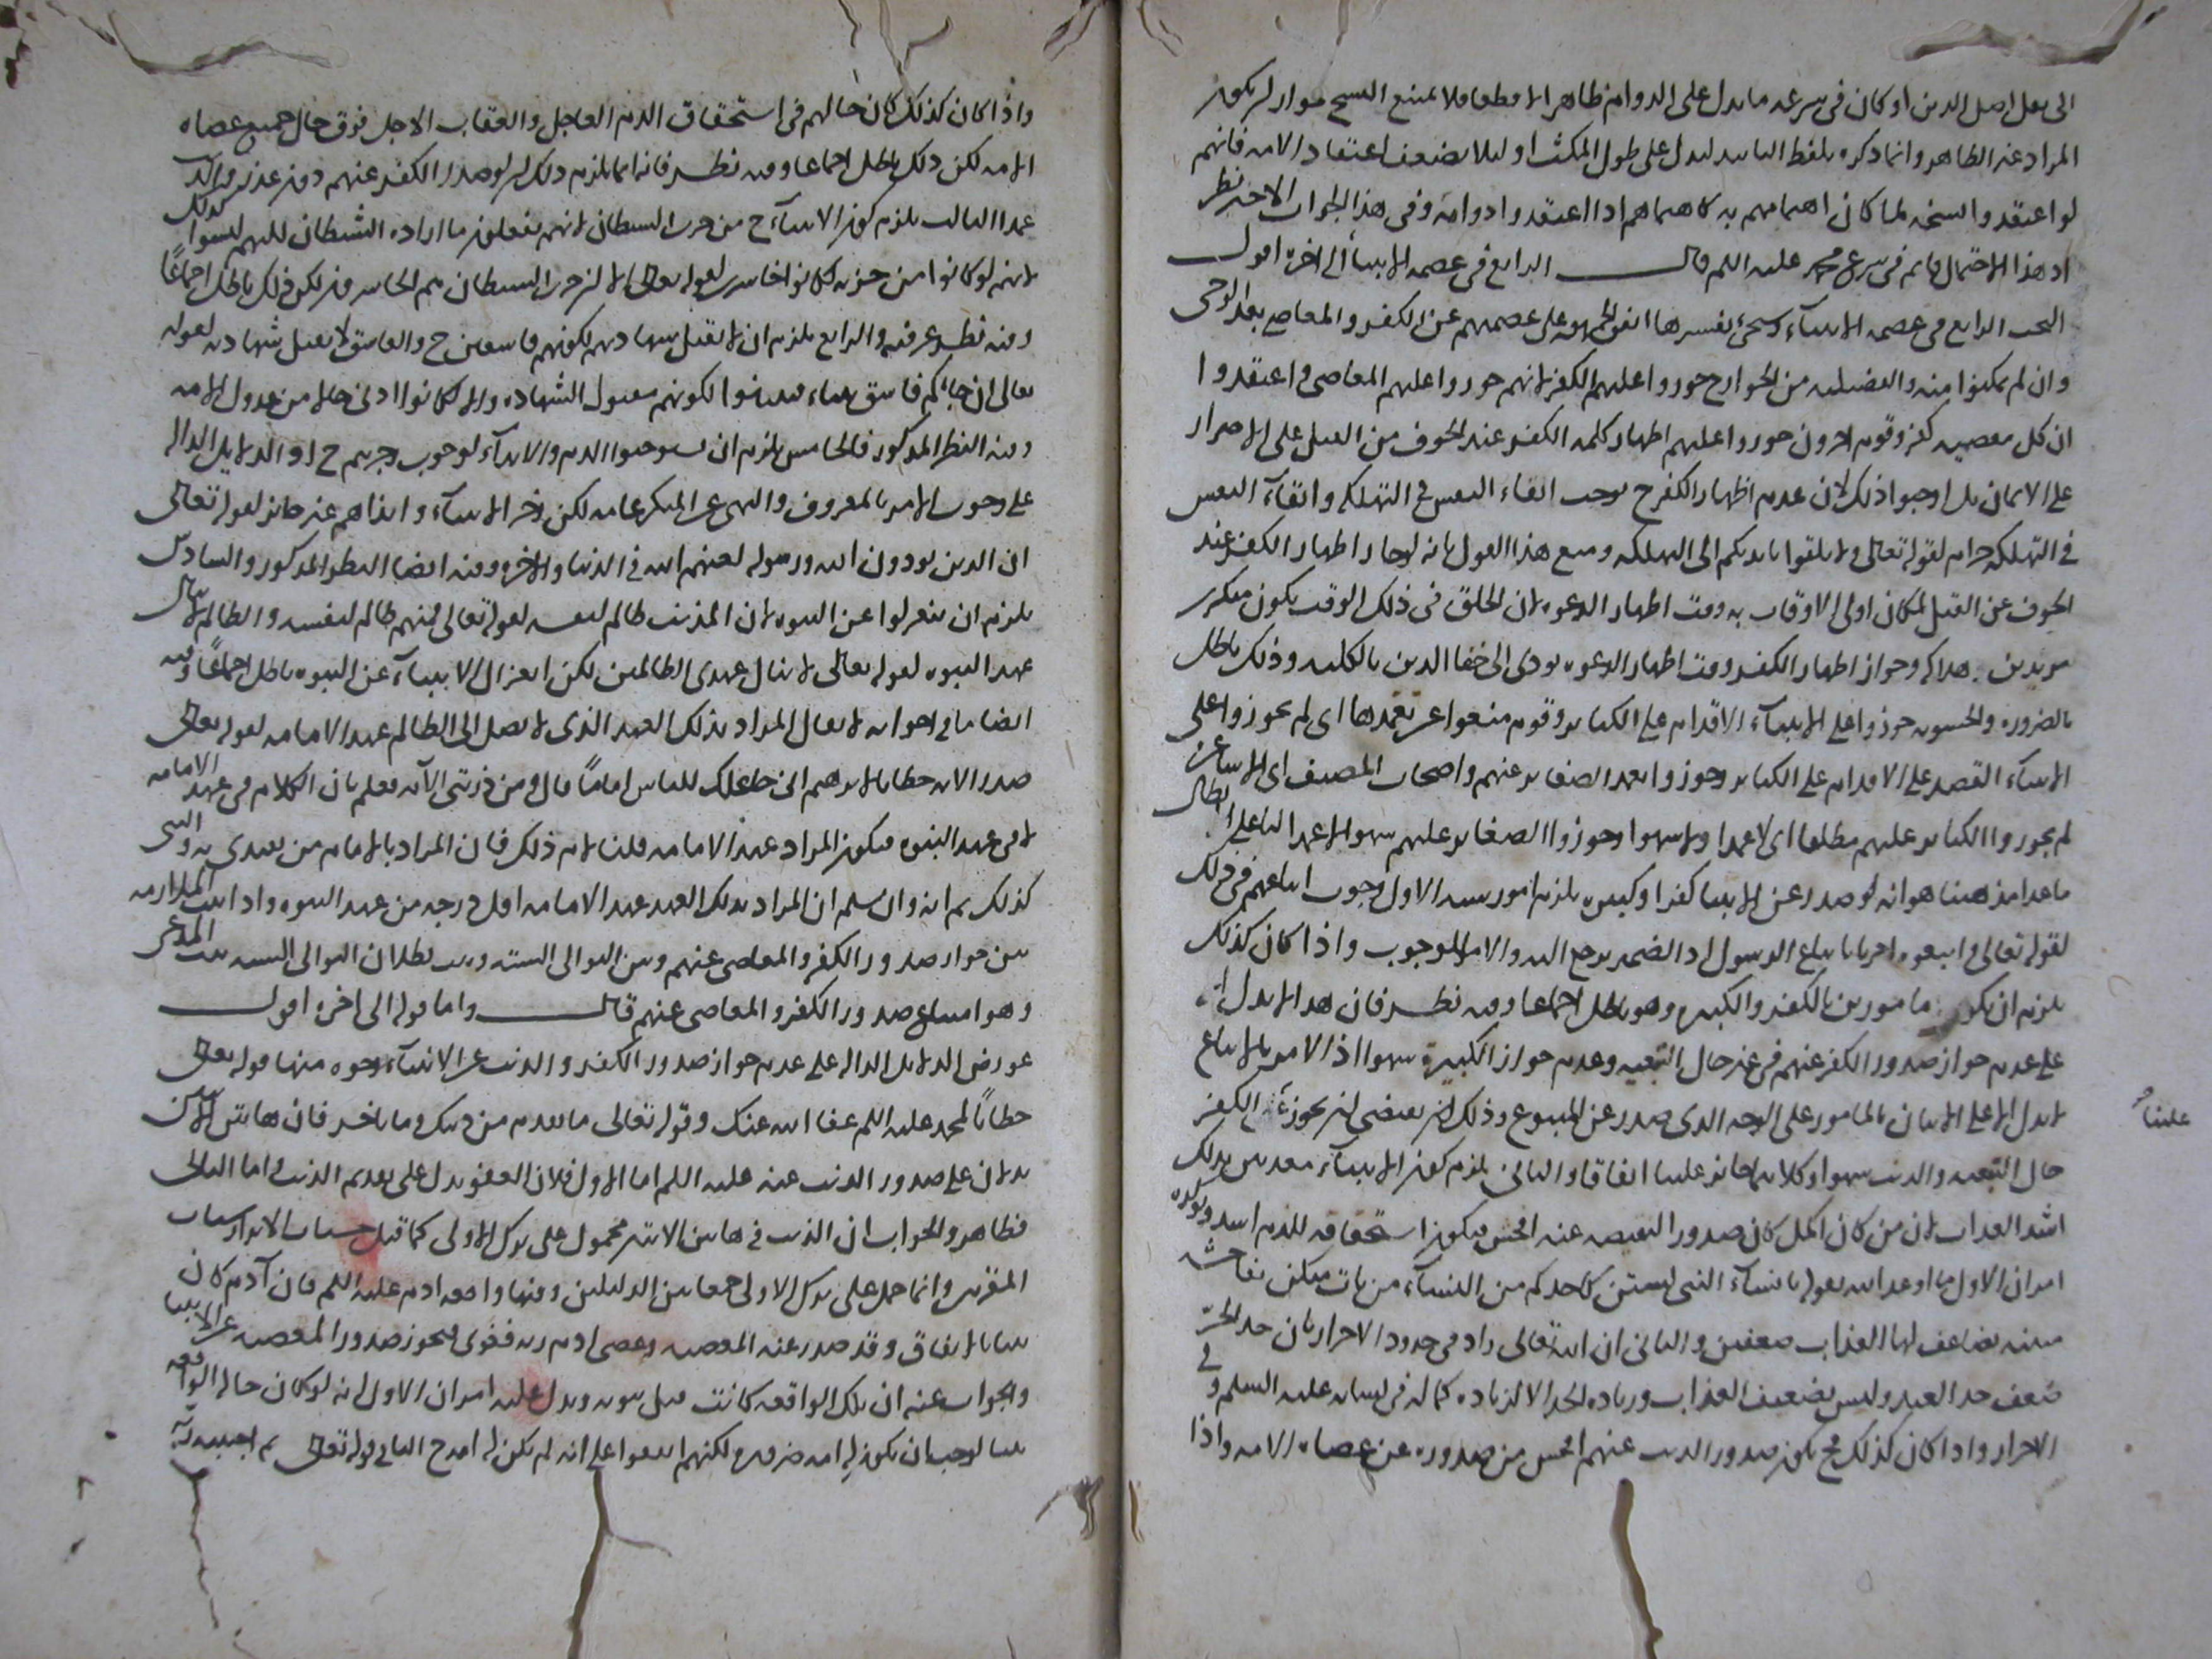 الى نقل اصل الدين او كان في شرعه ما يدل على الدوام ظاهرا لا قطعا فلا يمتنع النسخ جواز ان يكون
المراد غير الظاهر وانما ذكره بلفظ التابيد ليدل على طول المكث او لئلا يضعف اعتقاد الامة فانهم
لو اعتقدوا نسخه لما كان اهتمامهم به كاهتمامهم اذا اعتقدوا دوامه وفي هذا الجواب الاخير نظر
اذ هذا الاحتمال قائم في شرع محمد عليه السلم قال الرابع في عصمة الانبياء الى اخره اقول
البحث الرابع في عصمة الانبياء وسيجئ تفسيرها اتفق الجمهور على عصمتهم عن الكفر والمعاصي بعد الوحي
وان لم يمكنوا منه والفضيلية من الخوارج جوزوا عليهم الكفر لانهم جوزوا عليهم المعاصي واعتقدوا
ان كل معصية كفر وقوم اخرون جوزوا عليهم اظهار كلمة الكفر عند الخوف من القتل على الاصرار
على الايمان بل اوجبوا ذلك لان عدم اظهار الكفر ح يوجب القاء النفس في التهلكة والقاء النفس
في التهلكة حرام لقوله تعالى ولا تلقوا بايديكم الى التهلكة ومنع هذا القول بانه لو جاز اظهار الكفر عند
الخوف عن القتل لكان اولى الاوقات به وقت اظهار الدعوة لان الخلق في ذلك الوقت يكون منكرين
مريدين هلاكه وجواز اظهار الكفر وقت اظهار الدعوة يودي الى خفا الدين بالكلية وذلك باطل
بالضرورة والحشوية جوزوا على الانبياء الاقدام على الكبائر وقوم منعوا عن تعمدها اي لم يجوزوا على
الانبياء القصد على الاقدام على الكبائر وجوزوا تعمد الصغائر عنهم واصحاب المصنف اي الاشاعرة
لم يجوزوا الكبائر عليهم مطلقا اي لا عمدا ولا سهوا وجوزوا الصغائر عليهم سهوا لا عمدا لنا على ابطال
ما عدا مذهبنا هو انه لو صدر عن الانبيا كفر او كبيرة يلزم امور ستة الاول وجوب اتباعهم في ذلك
لقوله تعالى واتبعوه امرنا باتباع الرسول اذ الضمير يرجع اليه والامر للوجوب واذا كان كذلك
يلزم ان نكون مامورين بالكفر والكبيرة وهو باطل اجماعا وفيه نظر فان هذا لا يدل الا
على عدم جواز صدور الكفر عنهم في غير حال التقية وعدم جواز الكبيرة سهوا اذ الامر بالاتباع
لا يدل الا على الاتيان بالمامور على الوجه الذي صدر عن المتبوع وذلك يقتضي ان يجوز الكفر
علينا
حال التقية والذنب سهوا وكلاهما جائز علينا اتفاقا والثاني يلزم كون الانبياء معذبين بذلك
اشد العذاب لان من كان اكمل كان صدور النقيصة عنه افحش فيكون استحقاقه للذم اشد ويؤكده
امران الاول ما اوعد الله بقوله يا نساء النبي لستن كاحدكم من النساء من يات منكن بفاحشة
مبينة يضاعف لها العذاب ضعفين والثاني ان الله تعالى زاد في حدود الاحرار بان حد الحر
ضعف حد العبد وليس تضعيف العذاب وزيادة الحد الا لزيادة كماله في نسائه عليه السلم وفي
الاحرار واذا كان كذلك فح يكون صدور الذنب عنهم افحش من صدوره عن عصاة الامة واذا
واذا كان كذلك كان حالهم في استحقاق الذم العاجل والعقاب الاجل فوق حال جميع عصاة
الامة لكن ذلك باطل اجماعا وفيه نظر فانه انما يلزم ذلك ان لو صدر الكفر عنهم دون عذر
عمدا الثالث يلزم كون الانبياء ح من حزب الشيطان لانهم يفعلون ما اراده الشيطان لكنهم ليسوا كذلك
لانهم لو كانوا من حزبه لكانوا خاسرين لقوله تعالى الا ان حزب الشيطان هم الخاسرون لكن ذلك باطل اجماعا
وفيه نظر عرفته والرابع يلزم ان لا تقبل شهادتهم لكونهم فاسقين ح والفاسق لا تقبل شهادته لقوله
تعالى ان جائكم فاسق بنباء فتبينوا لكونهم مقبول الشهادة والا لكانوا ادنى حالا من عدول الامة
وفيه النظر المذكور والخامس يلزم ان يستوجبوا الذم والايذاء لوجوب زجرهم ح اذ الدلايل الدالة
على وجوب الامر بالمعروف والنهي عن المنكر عامة لكن زجر الانبياء وايذاهم غير جائز لقوله تعالى
ان الذين يوذون الله ورسوله لعنهم الله في الدنيا والاخرة وفيه ايضا النظر المذكور والسادس
يلزم ان ينعزلوا عن النبوة لان المذنب ظالم لنفسه لقوله تعالى فمنهم ظالم لنفسه والظالم لا ينال
عهد النبوة لقوله تعالى لا ينال عهدي الظالمين لكن انعزال الانبياء عن النبوة باطل اجماعا وفيه
ايضا ما في اخواته لا يقال المراد بذلك العهد الذي لا يصل الى الظالم عهد الامامة لقوله تعالى
صدر الاية خطابا لابرهيم اني جاعلك للناس اماما قال ومن ذريتي الاية فعلم بان الكلام في عهد الامامة
لا في عهد النبوة فيكون المراد عهد الامامة قلنا لا نم ذلك فان المراد بالامام من يقتدى به والنبي
كذلك ثم انه وان سلم ان المراد بذلك العهد عهد الامامة اقل درجة من عهد النبوة واذا ثبت الملازمة
بين جواز صدور الكفر والمعاصي عنهم وبين التوالي الستة وثبت بطلان التوالي الستة ثبت المدعى
وهو امتناع صدور الكفر والمعاصي عنهم قال واما قوله الى اخره اقول
عورض الدلايل الدالة على عدم جواز صدور الكفر والذنب عن الانبياء بوجوه منها قوله تعالى
خطابا لمحمد عليه السلم عفا الله عنك وقوله تعالى ما تقدم من ذنبك وما تاخر فان هاتين الايتين
يدلان على صدور الذنب عنه عليه السلم اما الاول فلان العفو يدل على تقدم الذنب واما الثاني
فظاهر والجواب ان الذنب في هاتين الايتين محمول على ترك الاولى كما قيل حسنات الابرار سيات
المقربين وانما حمل على ترك الاولى جمعا بين الدليلين ومنها واقعة ادم عليه السلم فان آدم كان
نبيا بالاتفاق وقد صدر عنه المعصية وعصى ادم ربه فغوى فيجوز صدور المعصية عن الانبيا
والجواب عنه ان تلك الواقعة كانت قبل نبوته ويدل عليه امران الاول انه لو كان حال الواقعة
نبيا لوجب ان يكون له امة ضرورة لكنهم اتفقوا على انه لم يكن له امة ح الثاني قوله تعالى ثم اجتبيه ربه